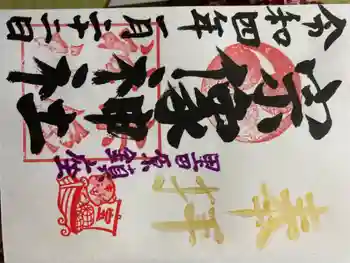 奉拝
宗像神社
令和四年一月二十二日